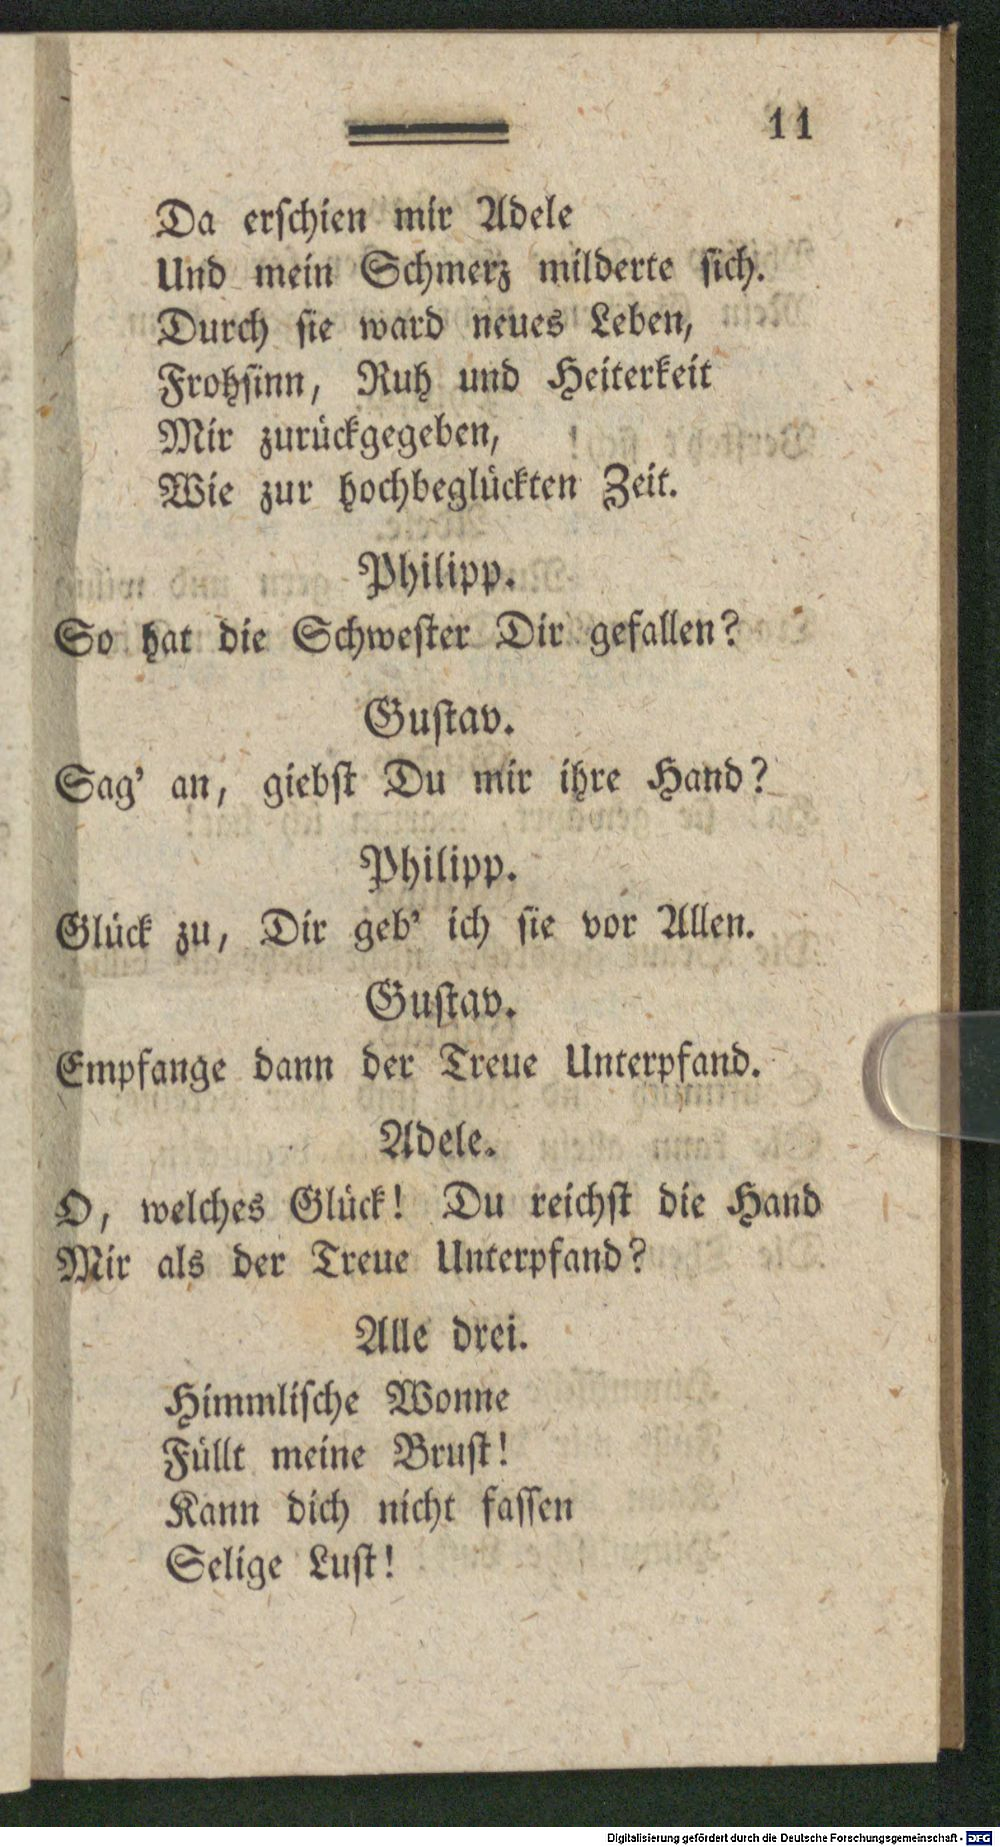 11
Da erschien mir Adele
Und mein Schmerz milderte sich.
Durch sie ward neues Leben,
Frohsinn, Ruh und Heiterkeit
Mir zurückgegeben,
Wie zur hochbeglückten Zeit.
Philipp.
So hat die Schwester Dir gefallen?
Gustav.
Sag' an, giebst Du mir ihre Hand?
Philipp.
Glück zu, Dir geb' ich sie vor Allen.
Gustav.
Empfange dann der Treue Unterpfand.
Adele.
O, welches Glück! Du reichst die Hand
Mir als der Treue Unterpfand?
Alle drei.
Himmlische Wonne
Füllt meine Brust!
Kann dich nicht fassen
Selige Lust!
Digitalisierung gefördert durch die Deutsche Forschungsgemeinschaft - DFG